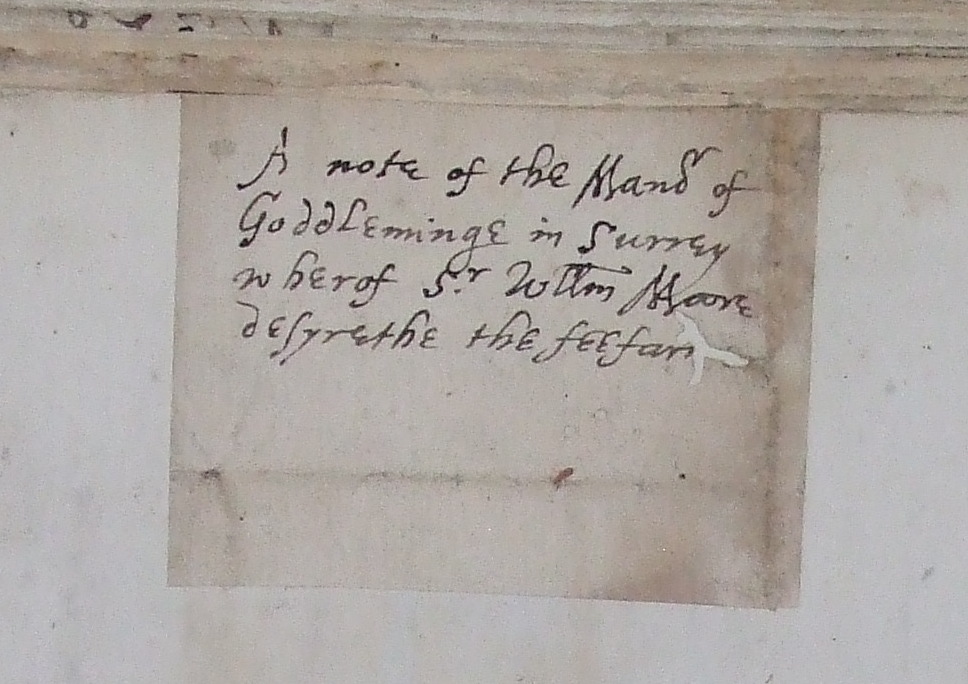 A note of the Manor of
Goddleminge in Surrey
wherof Sr. Willm Moore
desyrethe the feefarm